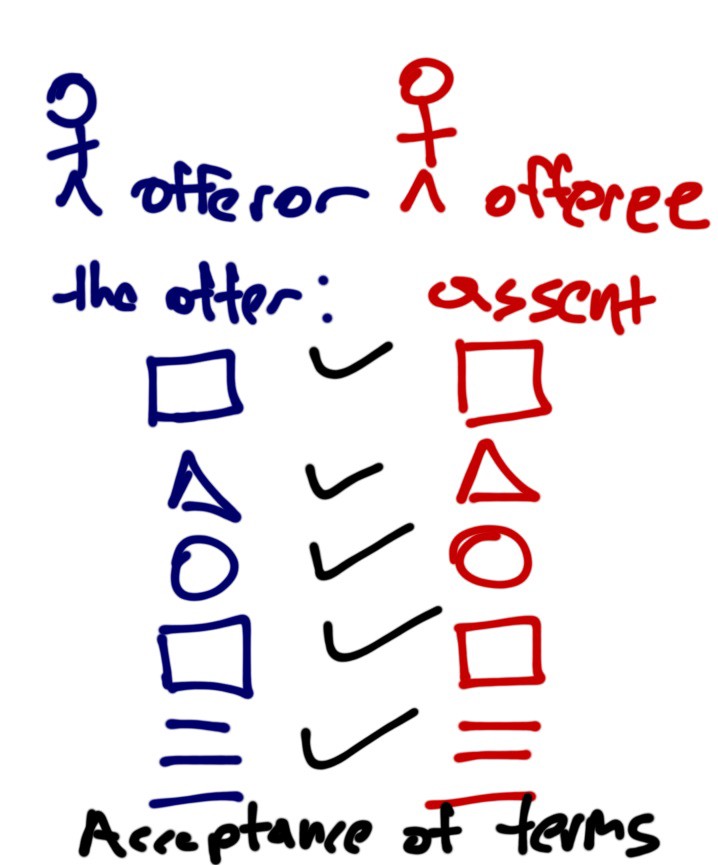 offeror offeree
the offer: assent
Acceptance of terms